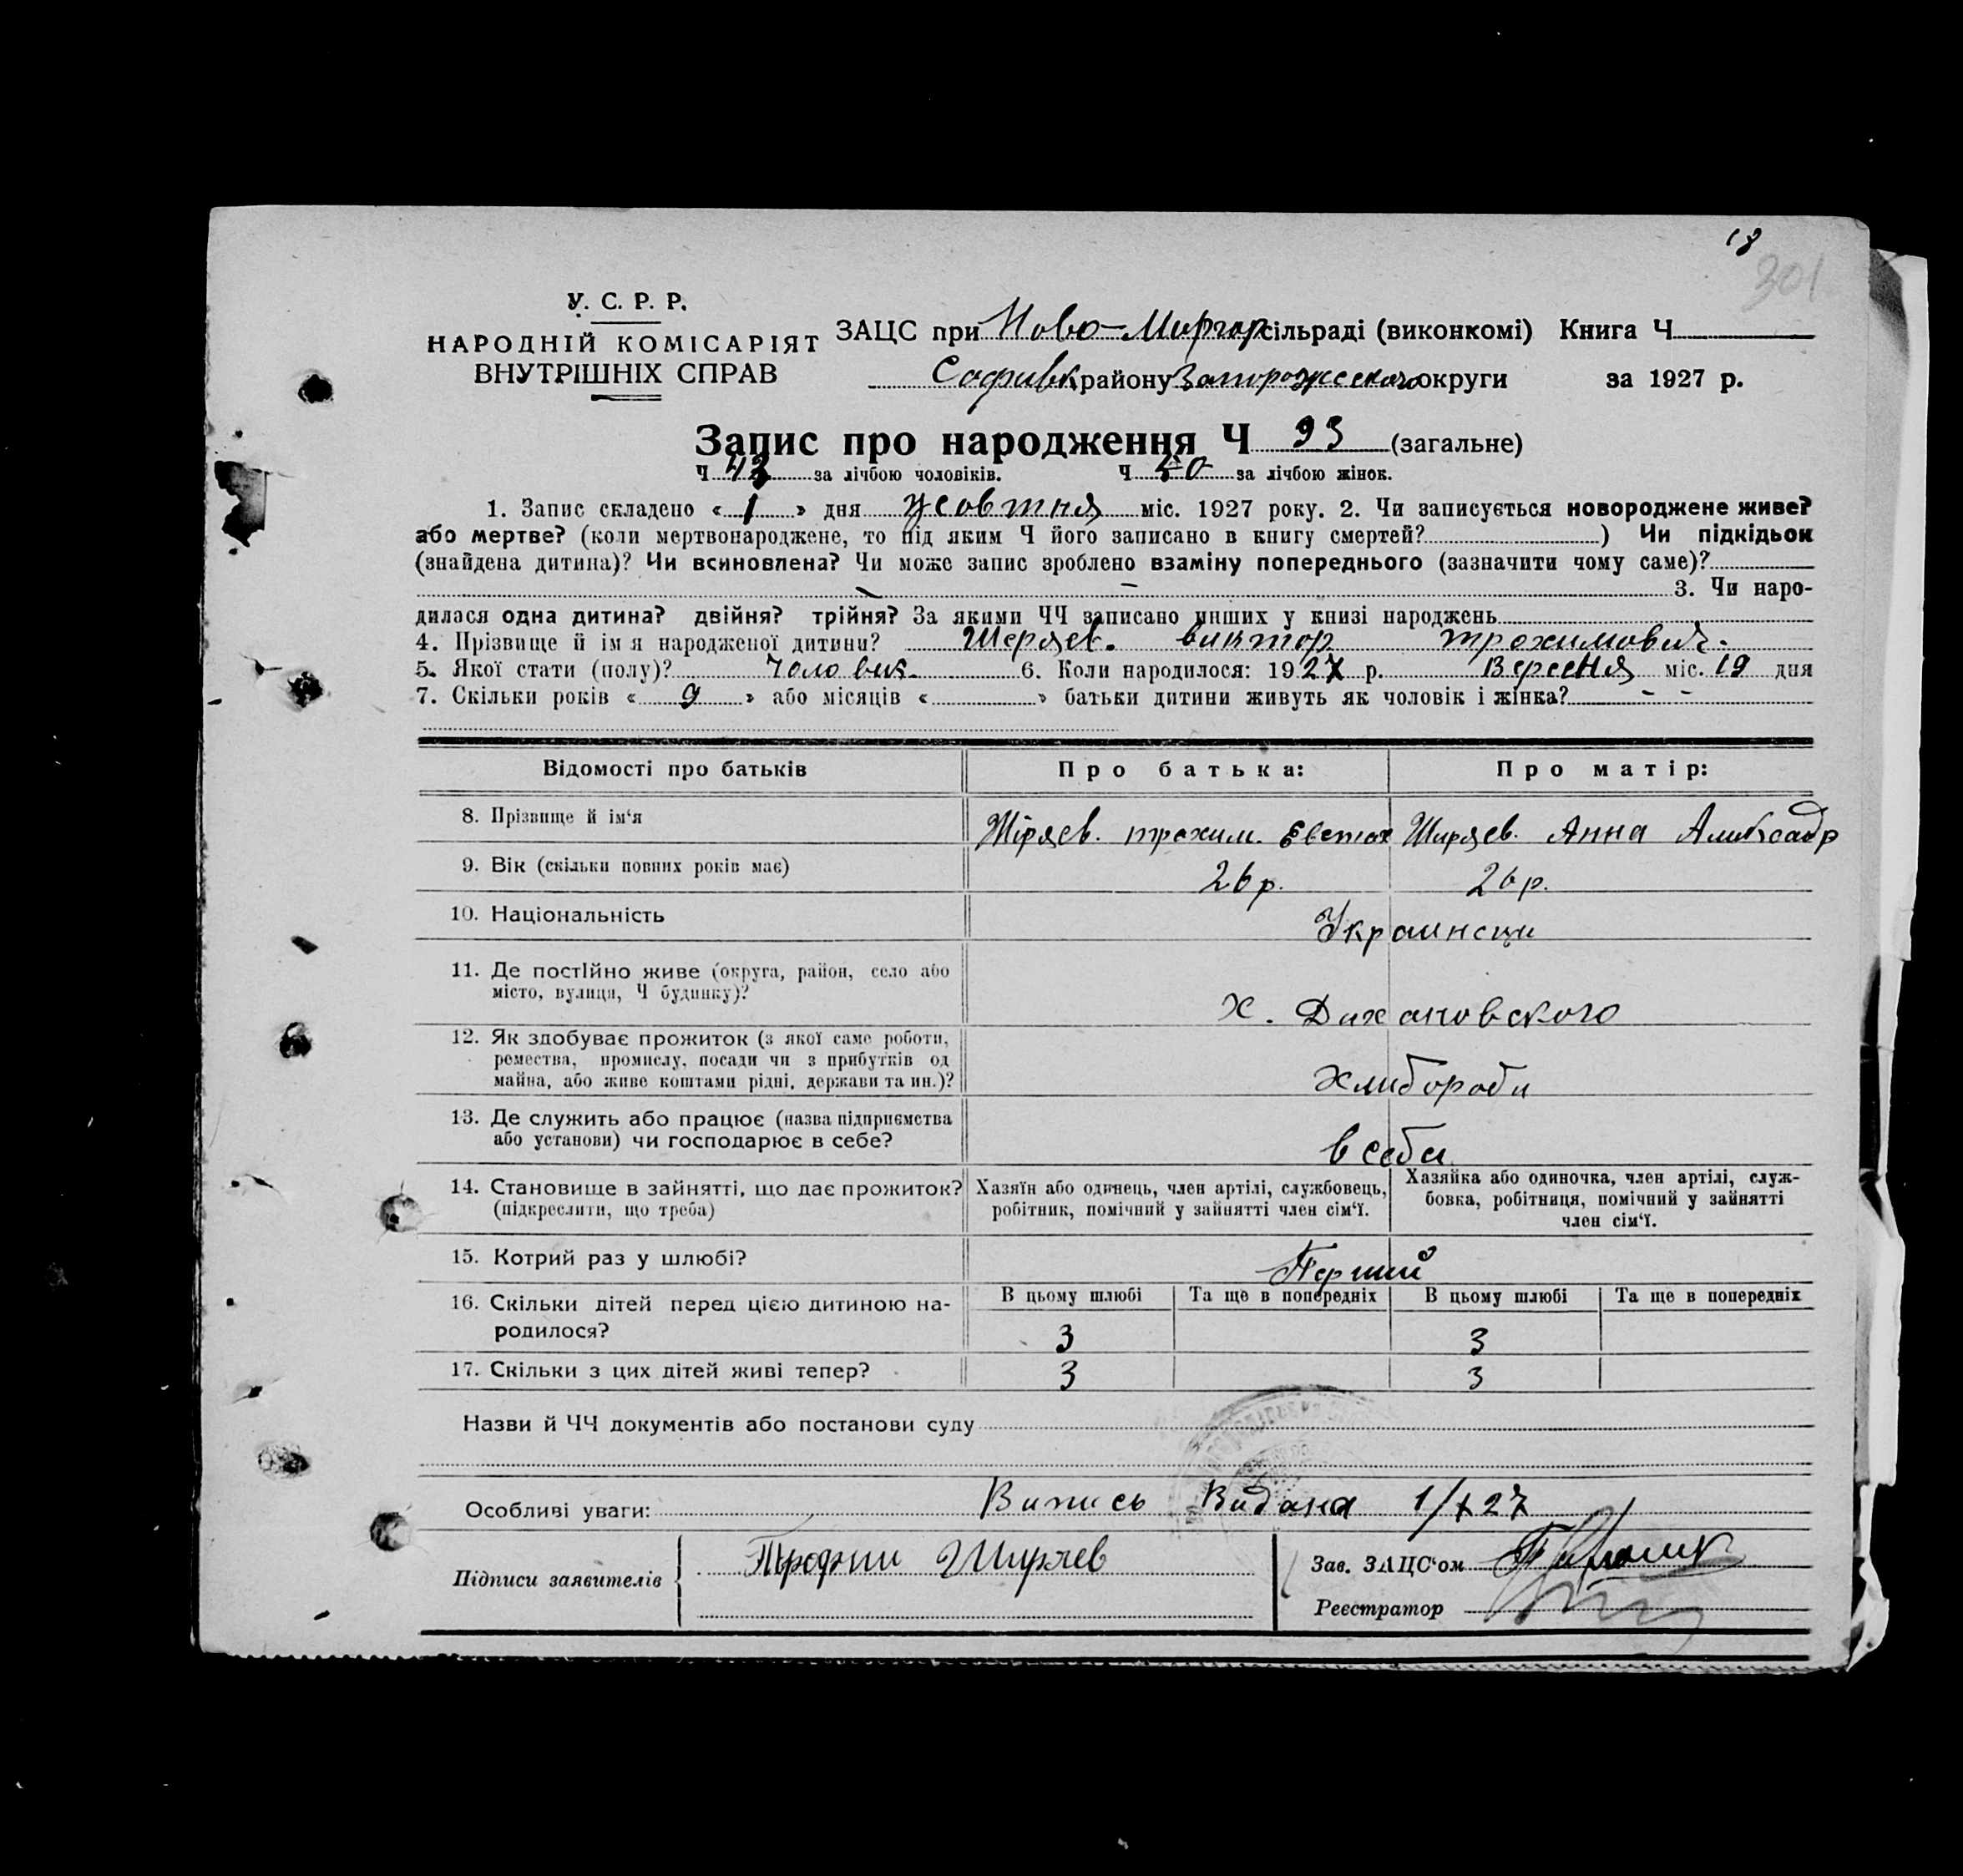 18
301
У. С. Р. Р.
НАРОДНІЙ КОМІСАРІЯТ
ВНУТРІШНІХ СПРАВ
ЗАЦС при Ново-Миргор сільраді (виконкомі) Книга Ч
Софивк району Запорожсского округи за 1927 р.
Запис про народження Ч 93 (загальне)
Ч 43 за лічбою чоловіків. Ч 50 за лічбою жінок.
1. Запис складено « 1 » дня жовтня міс. 1927 року. 2. Чи записується новороджене живе?
або мертве? (коли мертвонароджене, то під яким Ч його записано в книгу смертей? ) Чи підкідьок
(знайдена дитина)? Чи всиновлена? Чи може запис зроблено взаміну попереднього (зазначити чому саме)?
3. Чи наро-
дилася одна дитина? двійня? трійня? За якими ЧЧ записано инших у книзі народжень
4. Прізвище й ім я народженої дитини? Шеряев. виктор трохимович.
5. Якої стати (полу)? чоловик. 6. Коли народилося: 1927 р. Вересня міс. 19 дня
7. Скільки років « 9 » або місяців « » батьки дитини живуть як чоловік і жінка? - -
Відомості про батьків Про батька: Про матір:
8. Прізвище й ім‘я Шіряев. трохим. Евстах Ширяев. Анна Алибсадр
9. Вік (скільки повних років має) 26 р. 26 р.
10. Національність Украинсци
11. Де постійно живе (округа, район, село або
місто, вулиця, Ч будинку)? х. Дихановского
12. Як здобуває прожиток (з якої саме роботи,
ремества, промислу, посади чи з прибутків од
майна, або живе коштами рідні, держави та ин.)? Хлибороби
13. Де служить або працює (назва підприємства
або установи) чи господарює в себе? в себи
14. Становище в зайнятті, що дає прожиток?
(підкреслити, що треба)
Хазяїн або одинець, член артілі, службовець,
робітник, помічний у зайнятті член сім‘ї.
Хазяйка або одиночка, член артілі, служ-
бовка, робітниця, помічний у зайнятті
член сім‘ї.
15. Котрий раз у шлюбі? Перший
В цьому шлюбі Та ще в попередніх В цьому шлюбі Та ще в попередніх
16. Скільки дітей перед цією дитиною на-
родилося? 3 3
17. Скільки з цих дітей живі тепер? 3 3
Назви й ЧЧ документів або постанови суду
Особливі уваги: Випись Видана 1/X 27
Підписи заявителів Трофим Ширяев
Зав. ЗАЦС‘ом
Реєстратор